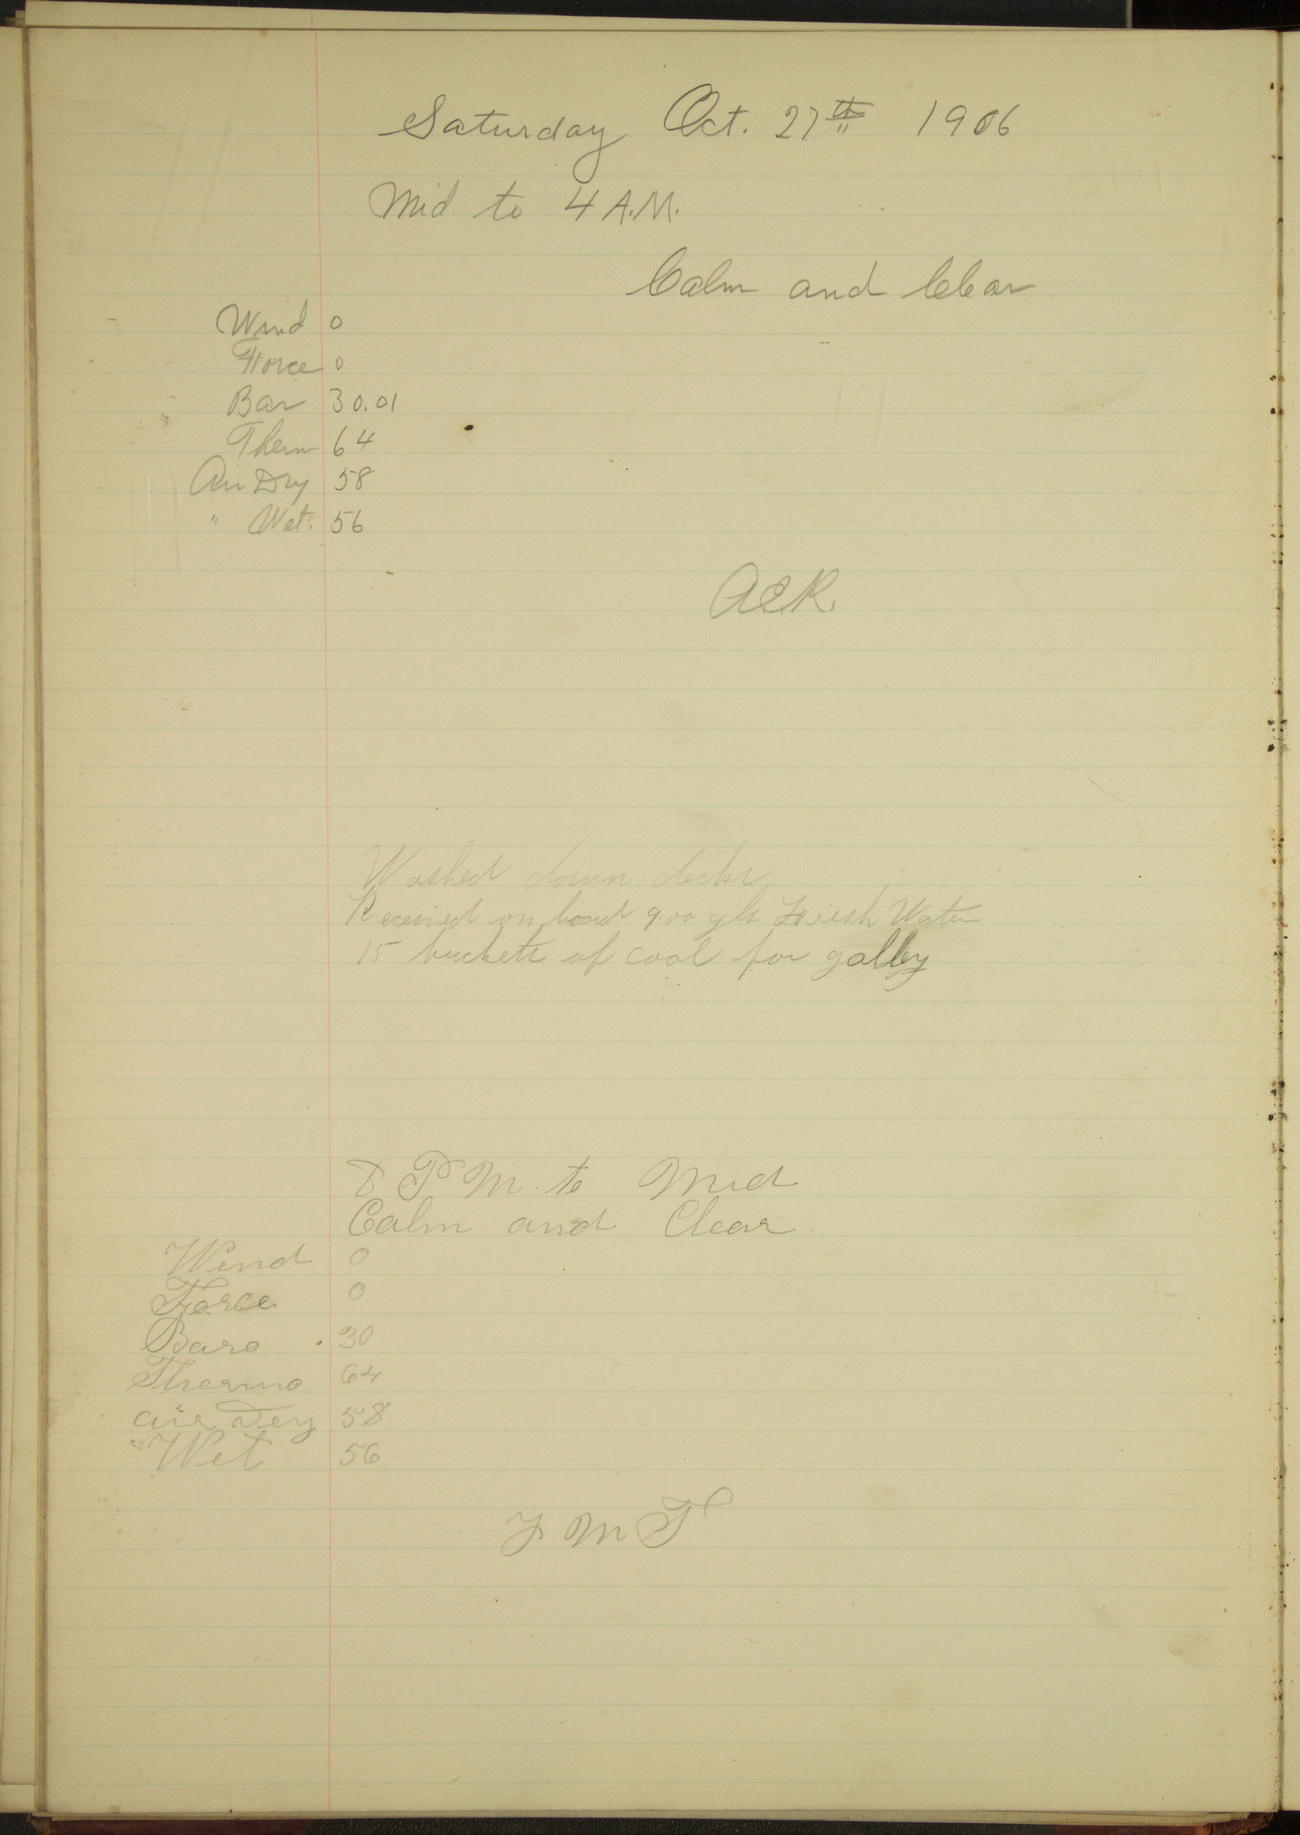 Saturday Oct. 27th 1906
Mid. to 4 A.M.
Calm and Clear
Wind 0
Force 0
Bar 30.01
Therm 64
Air Dry 58
" Wet. 56
A.E.R.
Washed down decks
Received on board 900 gls Fresh Water
15 buckets of coal for galley
8 P M. to Mid
Calm and Clear
Wind 0
Force 0
Baro . 30
Thermo 64
Air Dry 58
" Wet 56
F M T